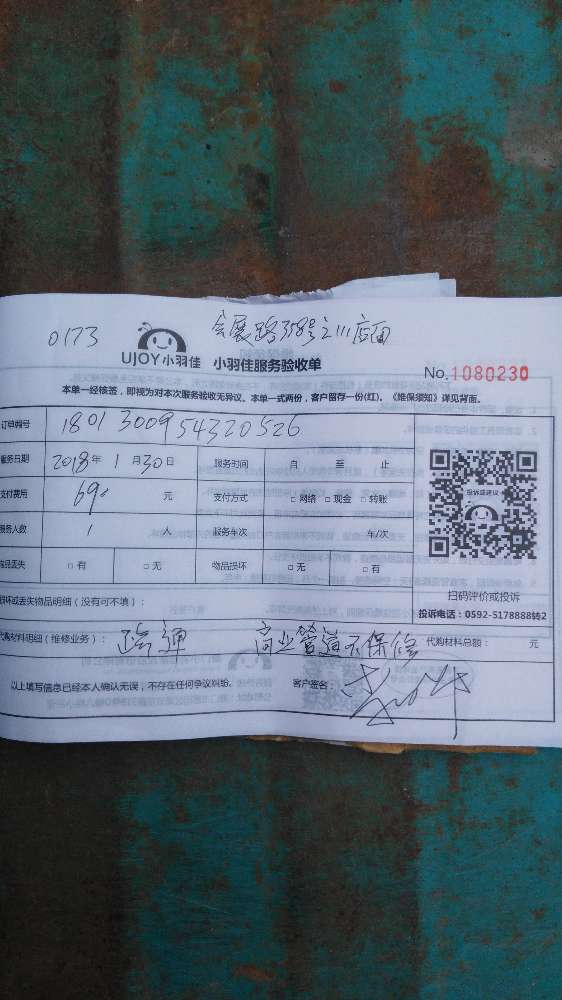 0173 会展路358号之111店面
UJOY小羽佳 小羽佳服务验收单
No.1080230
本单一经核签，即视为对本次服务验收无异议。本单一式两份，客户留存一份(红)。《维保须知》详见背面。
订单编号 1801300954320526
服务日期 2018年1月30日 服务时间 自 至 止
支付费用 69 元 支付方式 □网络 □现金 □转账
服务人数 1 人 服务车次 车/次
物品丢失 □有 □无 物品损坏 □无 □有
投诉或建议
扫码评价或投诉
投诉电话：0592-5178888转2
损坏或丢失物品明细（没有可不填）：
代购材料明细（维修业务）： 疏通 商业管道不保修 代购材料总额： 元
以上填写信息已经本人确认无误，不存在任何争议纠纷。 客户签名：